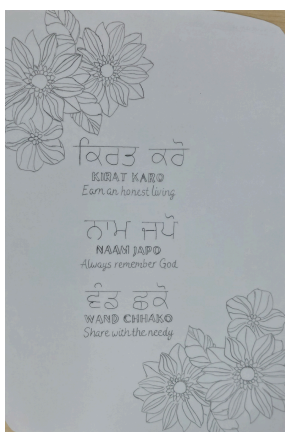 ਕਿਰਤ ਕਰੋ
KIRAT KARO
Earn an honest living
ਨਾਮ ਜਪੋ
NAAM JAPO
Always remember God
ਵੰਡ ਛਕੋ
WAND CHHAKO
Share with the needy